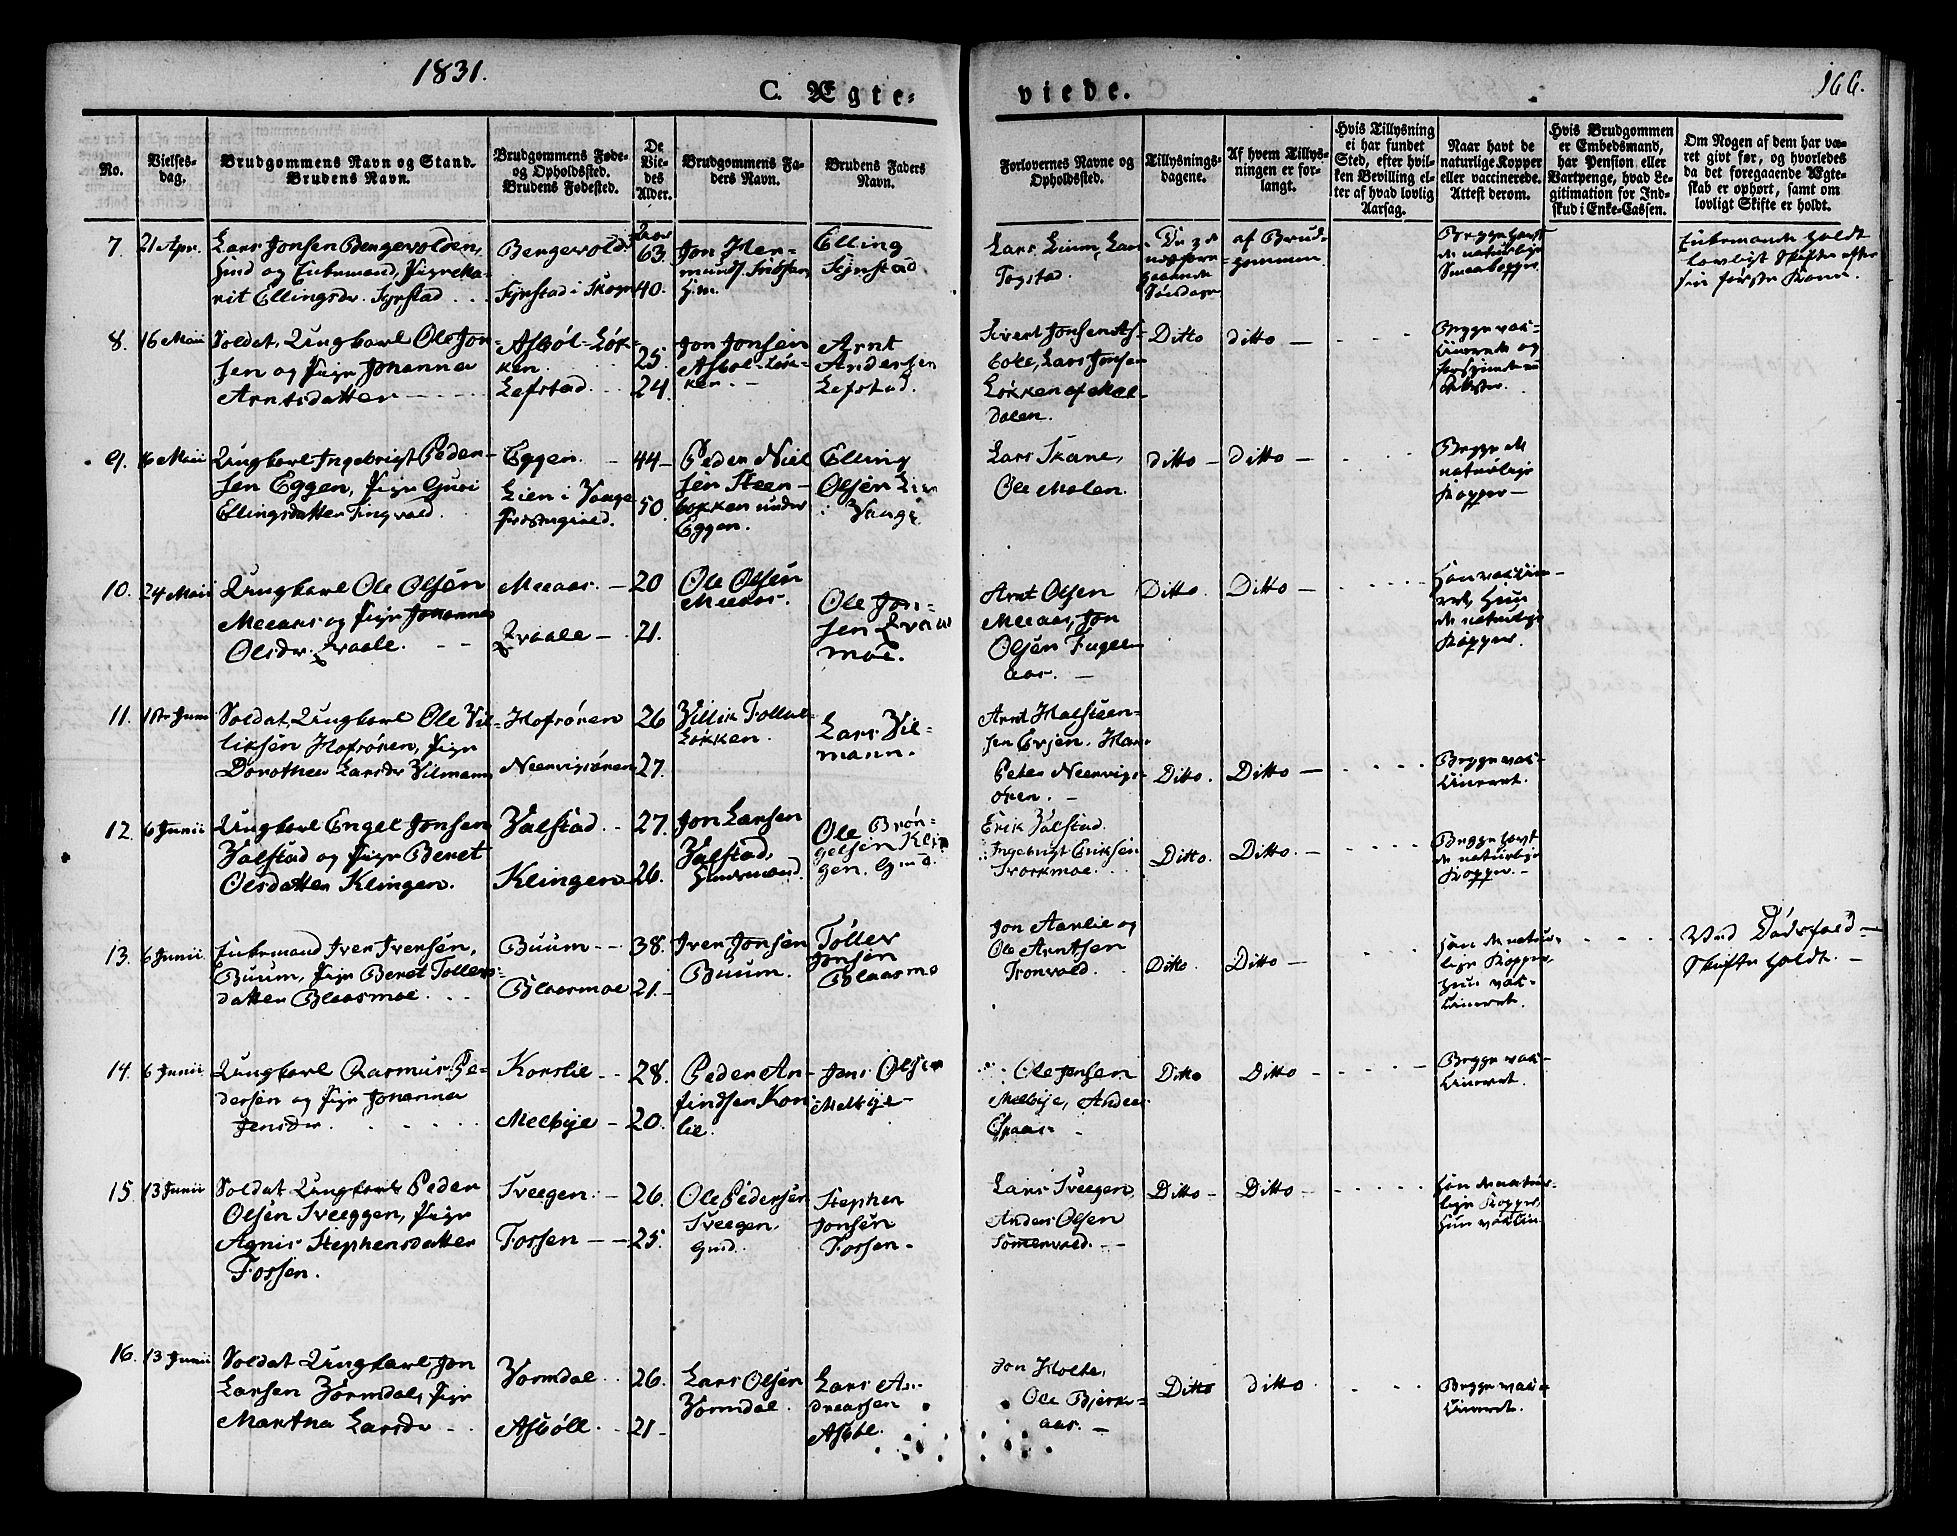 1831.
C. Ægte-
viede.
166.
No.
Vielses-
dag.
Brudgommens Navn og Stand.
Brudens Navn.
Brudgommens Føde-
og Opholdssted.
Brudens Fødested.
De
Vie-
des
Alder.
Brudgommens Fa-
ders Navn.
Brudens Faders
Navn.
Forlovernes Navne og
Opholdssted.
Tillysnings-
dagene.
Af hvem Tillys-
ningen er for-
langt.
Hvis Tillysning
ei har fundet
Sted, efter hvil-
ken Bevilling el-
ter af hvad lovlig
Aarsag.
Naar havt de
naturlige Kopper
eller vaccinerede.
Attest derom.
Hvis Brudgommen
er Embedsmand,
har Pension eller
Vartpenge, hvad Le-
gitimation for Ind-
skud i Enke-Cassen.
Om Nogen af dem har væ-
ret givt før, og hvorledes
da det foregaaende Ægte-
skab er ophørt, samt om
lovligt Skifte er holdt.
7.
21 Apr.
Lars Jonsen Bergevolden,
og Enkemand, Pige Ma-
rit Ellingsdr.
63.
40.
Jon
Elling
Lars
af Brud-
gommen
Begge havt
de naturlige
Enkemand holdt
lovligt Skifte efter
sin første Kone
8.
16 Maii
Soldat, Ungkarl Ole Jon-
sen og Pige Johanna
Arntsdatter
Asbøl-Løk-
ken.
Lefstad.
25.
24.
Jon Jonsen
Asbøl-Løk-
ken.
Arnt
Andersen
Lefstad.
Sivert Jonsen As-
Lars Jonsen
Løkken af Mel-
dalen.
Ditto
ditto
Begge vac-
cinerede og
9.
16 Maii
Ungkarl Ingebrigt Peder-
sen Eggen, Pige Guri
Ellingsdatter Tingvold.
Eggen.
Lien i Vaage
44
50.
Peder Niel
sen Steen-
løkken under
Eggen.
Elling
Olsen Lien
i Vaage
Lars Skane,
Ole Molen.
ditto
ditto
Begge de
naturlige
Kopper
10.
24 Maii
Ungkarl Ole Olsen
Meeaas og Pige Johanna
Olsdr. Qvaale.
Meeaas.
Qvaale
20
21.
Ole Olsen
Meeaas.
Ole Jon-
sen Qvaale
moe.
Arnt Olsen
Meeaas, Jon
Olsen Fugel
aas.
Ditto.
Ditto
Han vaccine-
ret, Hun
de naturlige
Kopper.
11.
Soldat Ungkarl Ole Vil-
liksen Hofrönen, Pige
Dorothea Larsdr Vilmann
Hofrönen
Neervigsören
26
27.
Villik
Løkken.
Lars Vil-
mann.
Arnt Halsteen-
sen Evjen. Han
Peter Neervigs-
ören.
Ditto.
Ditto
Begge vac-
cineret.
12.
6 Junii
Ungkarl Engel Jonsen
Valstad og Pige Beret
Olsdatter Klingen.
Valstad.
Klingen
27.
26.
Jon Larsen
Valstad,
Ole Brön-
gelsen Klin
gen. Gmd.
Erik Valstad.
Ingebrigt Eriksen
Svorkmoe.
Ditto.
Ditto.
Begge havt
de naturlige
Kopper.
13.
6 Junii
Enkemand Iver Iversen,
Buum, Pige Beret Tollefs-
datter Blaasmoe.
Buum
Blaasmoe
38.
21.
Iver Jonsen
Buum.
Töllev
Jonsen
Blaasmo
Jon Aarlie og
Ole Arntsen
Tronvold.
Ditto.
Ditto
Han de natur-
lige Kopper,
Hun vac-
cineret.
Ved Dödsfald
Skifte holdt.
14.
6 Junii
Ungkarl Rasmus Pe-
dersen og Pige Johanna
Jensdr.
Korslie
Melbye
28.
20.
Peder An-
findsen Kors
lie.
Jens Olsen
Melbye
Ole Jensen
Melbye, Anders
Ditto
Ditto
Begge vac-
cineret.
15.
13 Junii
Soldat Ungkarl Peder
Olsen Sveeggen, Pige
Agnis Stephensdatter
Fossen.
Sveegen.
Fossen
26.
25.
Ole Pedersen
Sveegen.
Gmd.
Stephen
Jonsen
Fossen.
Lars Sveegen
Anders Olsen
Sömmervold.
Ditto
Ditto
Han de natur-
lige Kopper,
Hun vaccin
16.
13 Junii
Soldat Ungkarl Jon
Larsen Vormdal, Pige
Martha Larsdr
Vormdal
Asböll.
26.
21
Lars Olsen
Vormdal.
Lars An-
dreassen
Asböl.
Jon Holte,
Ole Bjerke-
aas.
Ditto
ditto
Begge vac-
cineret.